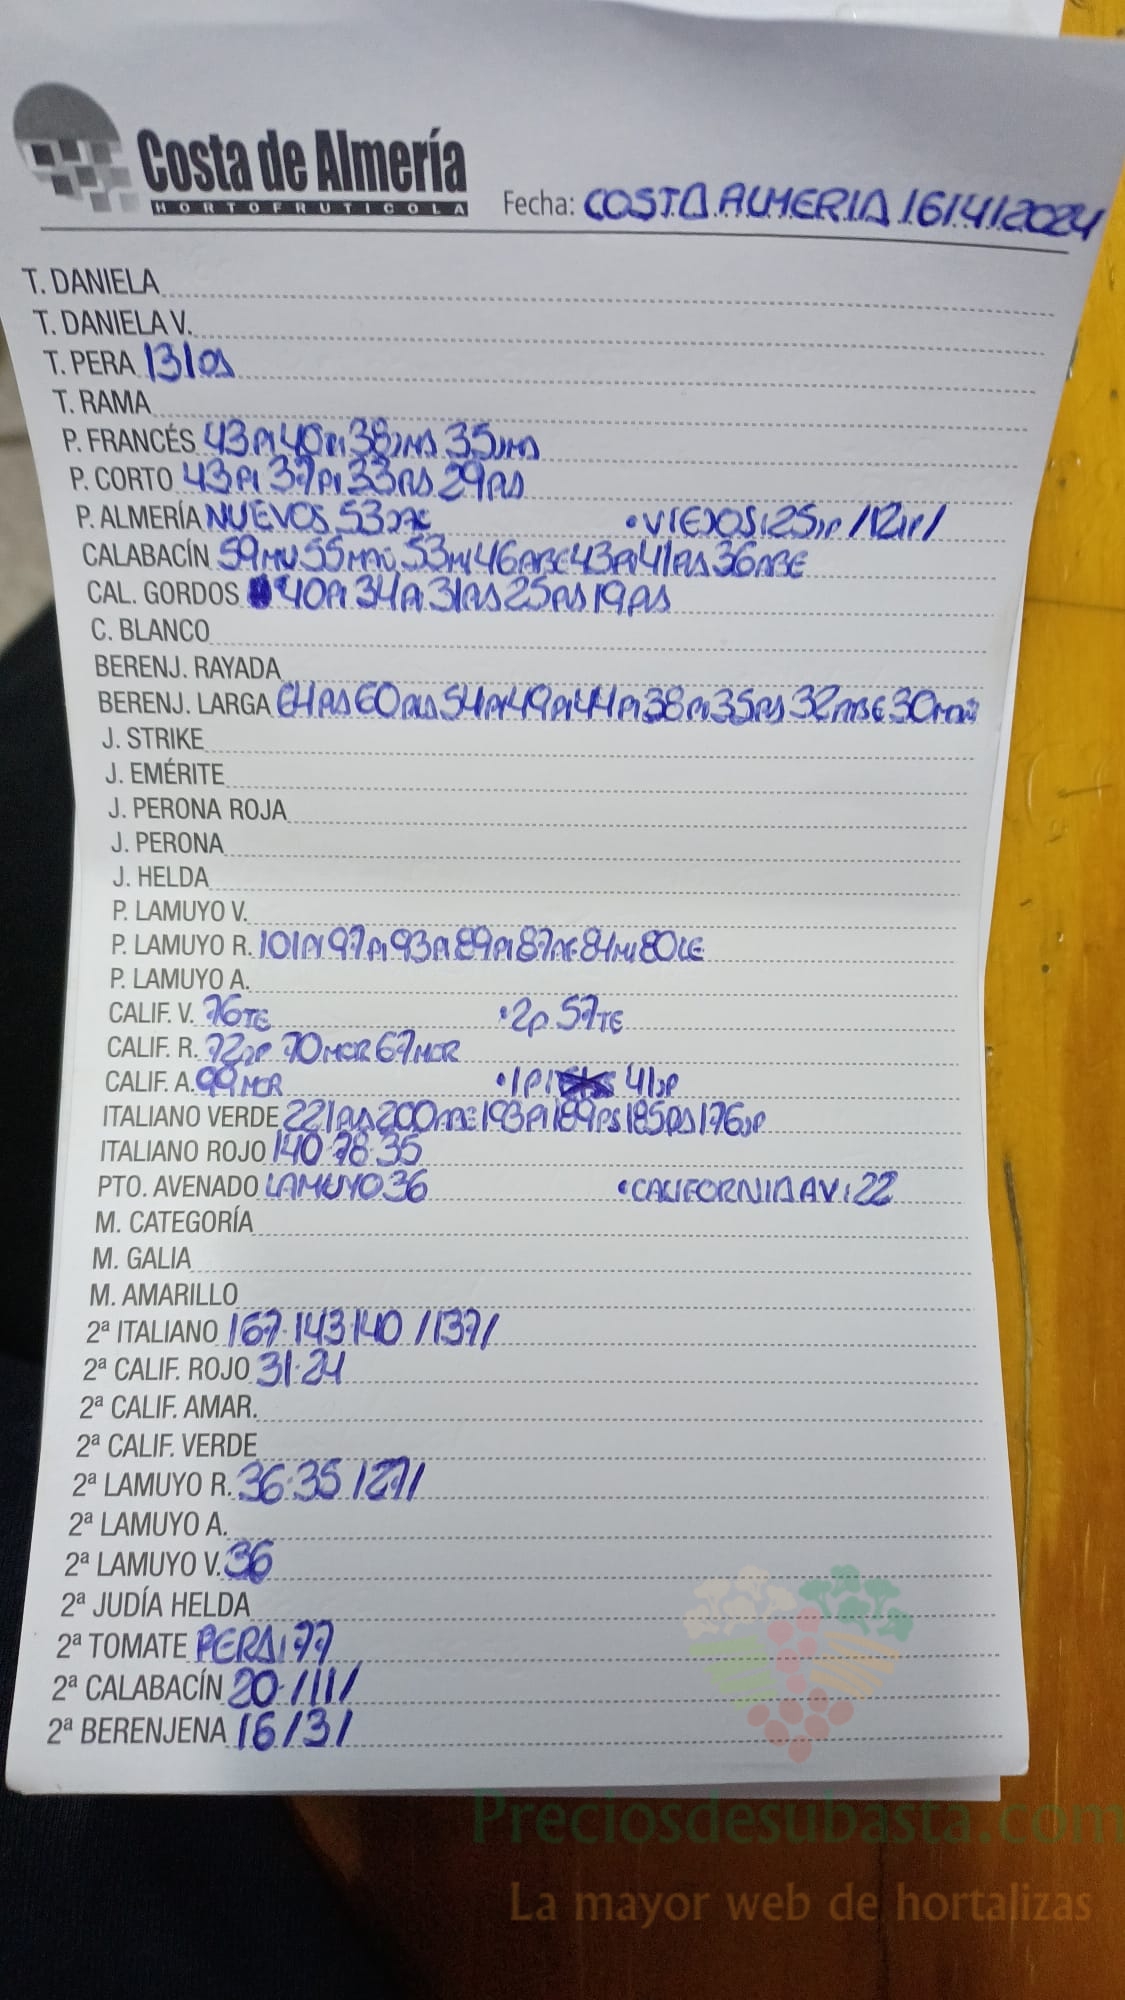 Costa de Almería
HORTOFRUTICOLA
Fecha: COSTA ALMERIA 16/4/2024
T. DANIELA
T. DANIELA V.
T. PERA 131
T. RAMA
P. FRANCÉS 43PI 40 38 35
P. CORTO 43PI 37PI 33AS 29AS
P. ALMERÍA NUEVOS 53 •VIEJOS: 25JP /12JP/
CALABACÍN 59MU 55 53MU 46ABE 43PI 41AS 36ABE
CAL. GORDOS 40PI 34PI 31AS 25AS 19AS
C. BLANCO
BERENJ. RAYADA
BERENJ. LARGA 64AS 60 54PI 49PI 44PI 38PI 35AS 32ABE 30
J. STRIKE
J. EMÉRITE
J. PERONA ROJA
J. PERONA
J. HELDA
P. LAMUYO V.
P. LAMUYO R. 101PI 97PI 93PI 89PI 87AE 84MU 80LE
P. LAMUYO A.
CALIF. V. 76TE •2P 57TE
CALIF. R. 72JP 70MCR 67MCR
CALIF. A. 99MCR •1P 41JP
ITALIANO VERDE 221 200 193PI 189 185 176JP
ITALIANO ROJO 140·78·35
PTO. AVENADO LAMUYO 36 •CALIFORNIA AV: 22
M. CATEGORÍA
M. GALIA
M. AMARILLO
2ª ITALIANO 167·143·140 /137/
2ª CALIF. ROJO 31·24
2ª CALIF. AMAR.
2ª CALIF. VERDE
2ª LAMUYO R. 36·35 /27/
2ª LAMUYO A.
2ª LAMUYO V. 36
2ª JUDÍA HELDA
2ª TOMATE PERA: 77
2ª CALABACÍN 20 /11/
2ª BERENJENA 16 /3/
Preciosdesubasta.com
La mayor web de hortalizas